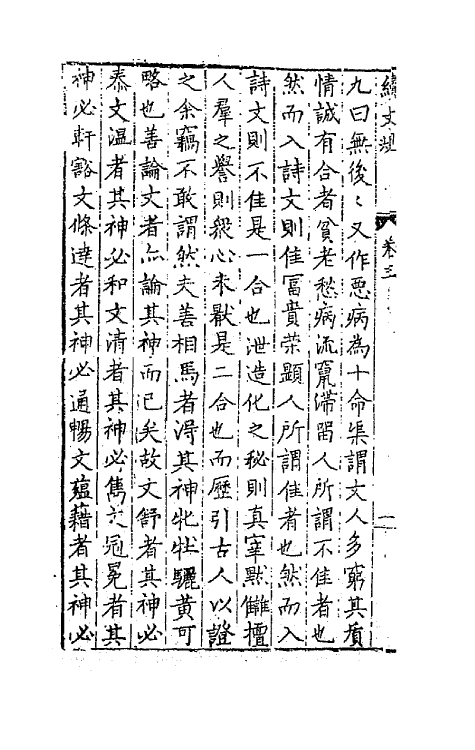 續文規 卷三 一
九曰無後〻又作惡病為十命渠謂文人多窮其質
情誠有合者貧老愁病流竄滯留人所謂不佳者也
然而入詩文則佳富貴榮顯人所謂佳者也然而入
詩文則不佳是一合也泄造化之秘則真宰默讎擅
人羣之譽則衆心未厭是二合也而歷引古人以證
之余竊不敢謂然夫善相馬者得其神牝牡驪黃可
略也善論文者亦論其神而已矣故文舒者其神必
泰文溫者其神必和文清者其神必雋文冠冕者其
神必軒豁文條達者其神必通暢文蘊藉者其神必